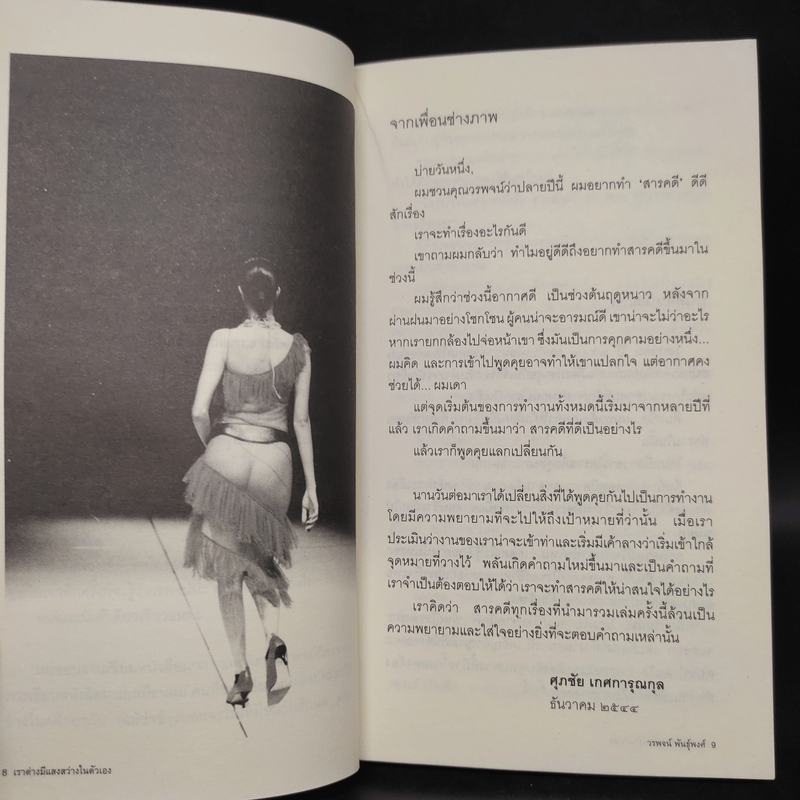 8 เราต่างมีแสงสว่างในตัวเอง
จากเพื่อนช่างภาพ
บ่ายวันหนึ่ง,
ผมชวนคุณวรพจน์ว่าปลายปีนี้ ผมอยากทำ ‘สารคดี’ ดีดี
สักเรื่อง
เราจะทำเรื่องอะไรกันดี
เขาถามผมกลับว่า ทำไมอยู่ดีดีถึงอยากทำสารคดีขึ้นมาใน
ช่วงนี้
ผมรู้สึกว่าช่วงนี้อากาศดี เป็นช่วงต้นฤดูหนาว หลังจาก
ผ่านฝนมาอย่างโชกโชน ผู้คนน่าจะอารมณ์ดี เขาน่าจะไม่ว่าอะไร
หากเรายกกล้องไปจ่อหน้าเขา ซึ่งมันเป็นการคุกคามอย่างหนึ่ง...
ผมคิด และการเข้าไปพูดคุยอาจทำให้เขาแปลกใจ แต่อากาศคง
ช่วยได้... ผมเดา
แต่จุดเริ่มต้นของการทำงานทั้งหมดนี้เริ่มมาจากหลายปีที่
แล้ว เราเกิดคำถามขึ้นมาว่า สารคดีที่ดีเป็นอย่างไร
แล้วเราก็พูดคุยแลกเปลี่ยนกัน
นานวันต่อมาเราได้เปลี่ยนสิ่งที่ได้พูดคุยกันไปเป็นการทำงาน
โดยมีความพยายามที่จะไปให้ถึงเป้าหมายที่ว่านั้น เมื่อเรา
ประเมินว่างานของเราน่าจะเข้าท่าและเริ่มมีเค้าลางว่าเริ่มเข้าใกล้
จุดหมายที่วางไว้ พลันเกิดคำถามใหม่ขึ้นมาและเป็นคำถามที่
เราจำเป็นต้องตอบให้ได้ว่า เราจะทำสารคดีให้น่าสนใจได้อย่างไร
เราคิดว่า สารคดีทุกเรื่องที่นำมารวมเล่มครั้งนี้ล้วนเป็น
ความพยายามและใส่ใจอย่างยิ่งที่จะตอบคำถามเหล่านั้น
ศุภชัย เกศการุณกุล
ธันวาคม ๒๕๔๔
วรพจน์ พันธุ์พงศ์ 9